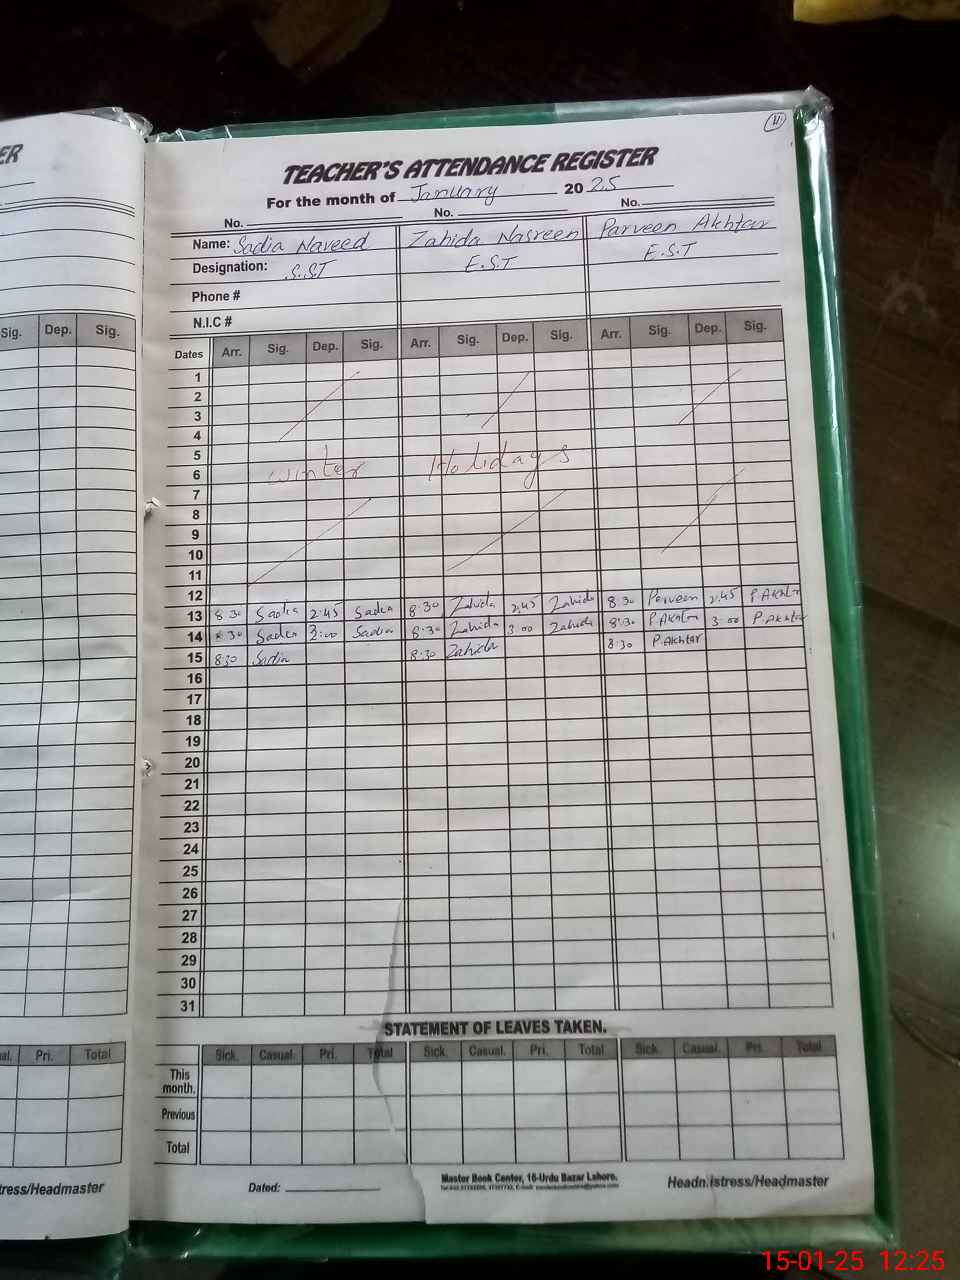 11
ER
TEACHER'S ATTENDANCE REGISTER
For the month of January 2025
No. No. No.
Name: Sadia Naveed Zahida Nasreen Parveen Akhtar
Designation: S.S.T E.S.T E.S.T
Phone #
N.I.C #
Sig. Dep. Sig.
Dates Arr. Sig. Dep. Sig. Arr. Sig. Dep. Sig. Arr. Sig. Dep. Sig.
1
2
3
4
5
6 Winter Holidays
7
8
9
10
11
12
13 8:30 Sadia 2:45 Sadia 8:30 Zahida 2:45 Zahida 8:30 Parveen 2:45 P.Akhtar
14 8:30 Sadia 3:00 Sadia 8:30 Zahida 3:00 Zahida 8:30 P.Akhtar 3:00 P.Akhtar
15 8:30 Sadia 8:30 Zahida 8:30 P.Akhtar
16
17
18
19
20
21
22
23
24
25
26
27
28
29
30
31
STATEMENT OF LEAVES TAKEN.
al. Pri. Total
Sick. Casual. Pri. Total Sick. Casual. Pri. Total Sick. Casual. Pri. Total
This
month.
Previous
Total
tress/Headmaster
Dated:
Master Book Center, 16-Urdu Bazar Lahore.
Headmistress/Headmaster
15-01-25 12:25